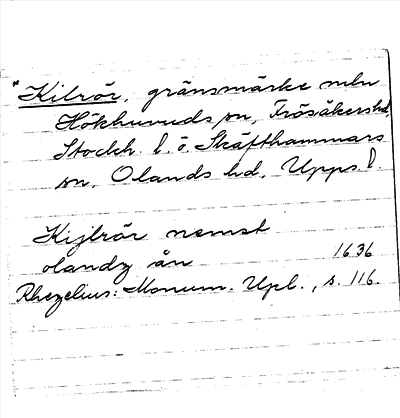 *Kilrör, gränsmärke mln
Hökhuvuds sn, Frösåkers hd,
Stockh. l. o. Skäfthammars
sn, Olands hd, Upps. l.
Kijlrör nemst
olandz ån 1636
Rhezelius: Monum. Upl., s. 116.